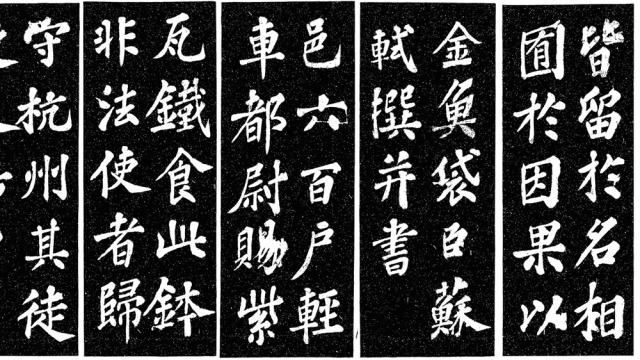 皆留於名相
囿於因果以
金魚袋臣蘇
軾撰并書
邑六百戶輕
車都尉賜紫
瓦鐵食此鉢
非法使者歸
守杭州其徒